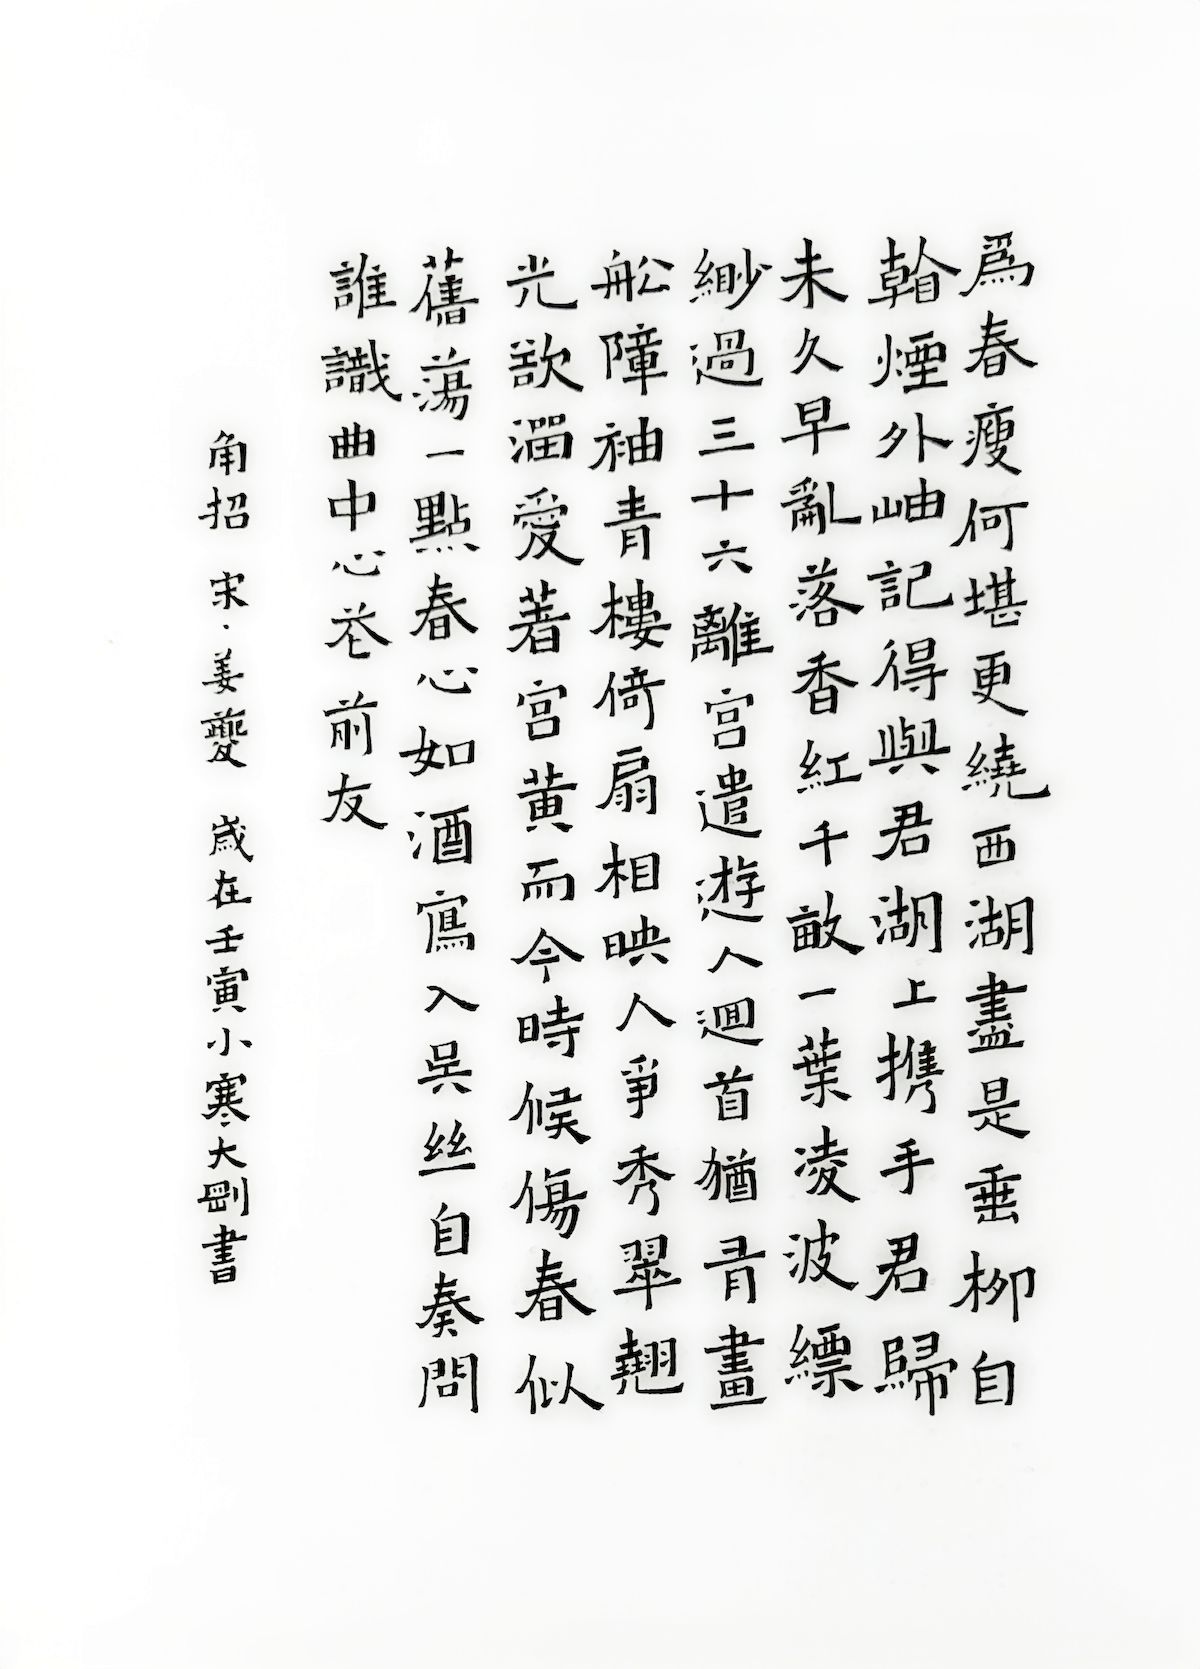 爲春瘦何堪更繞西湖盡是垂柳自
看煙外岫記得與君湖上携手君歸
未久早亂落香紅千畝一葉凌波縹
緲過三十六離宮遣遊人迴首猶有畫
舩障袖青樓倚扇相映人爭秀翠翹
光欲溜愛著宮黃而今時候傷春似
舊蕩一點春心如酒寫入吳絲自奏問
誰識曲中心花前友
角招 宋·姜夔 歲在壬寅小寒大剛書